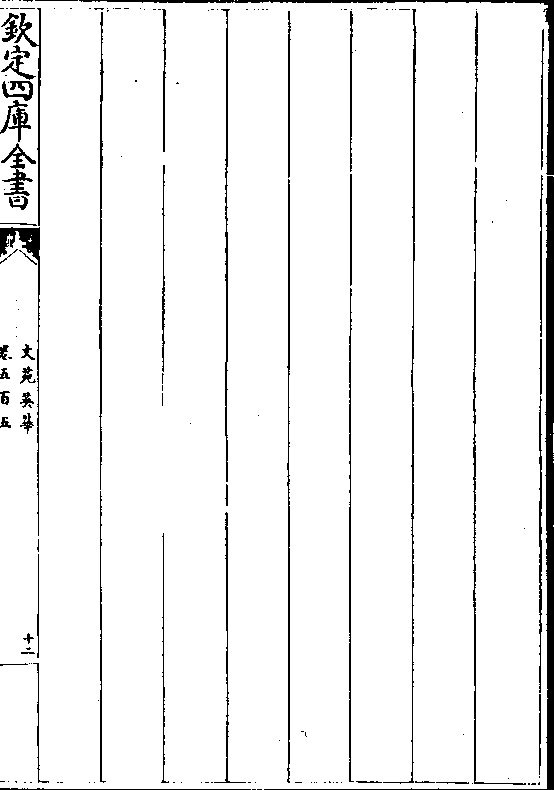 欽定四庫全書
文苑英華
卷五百五
十二